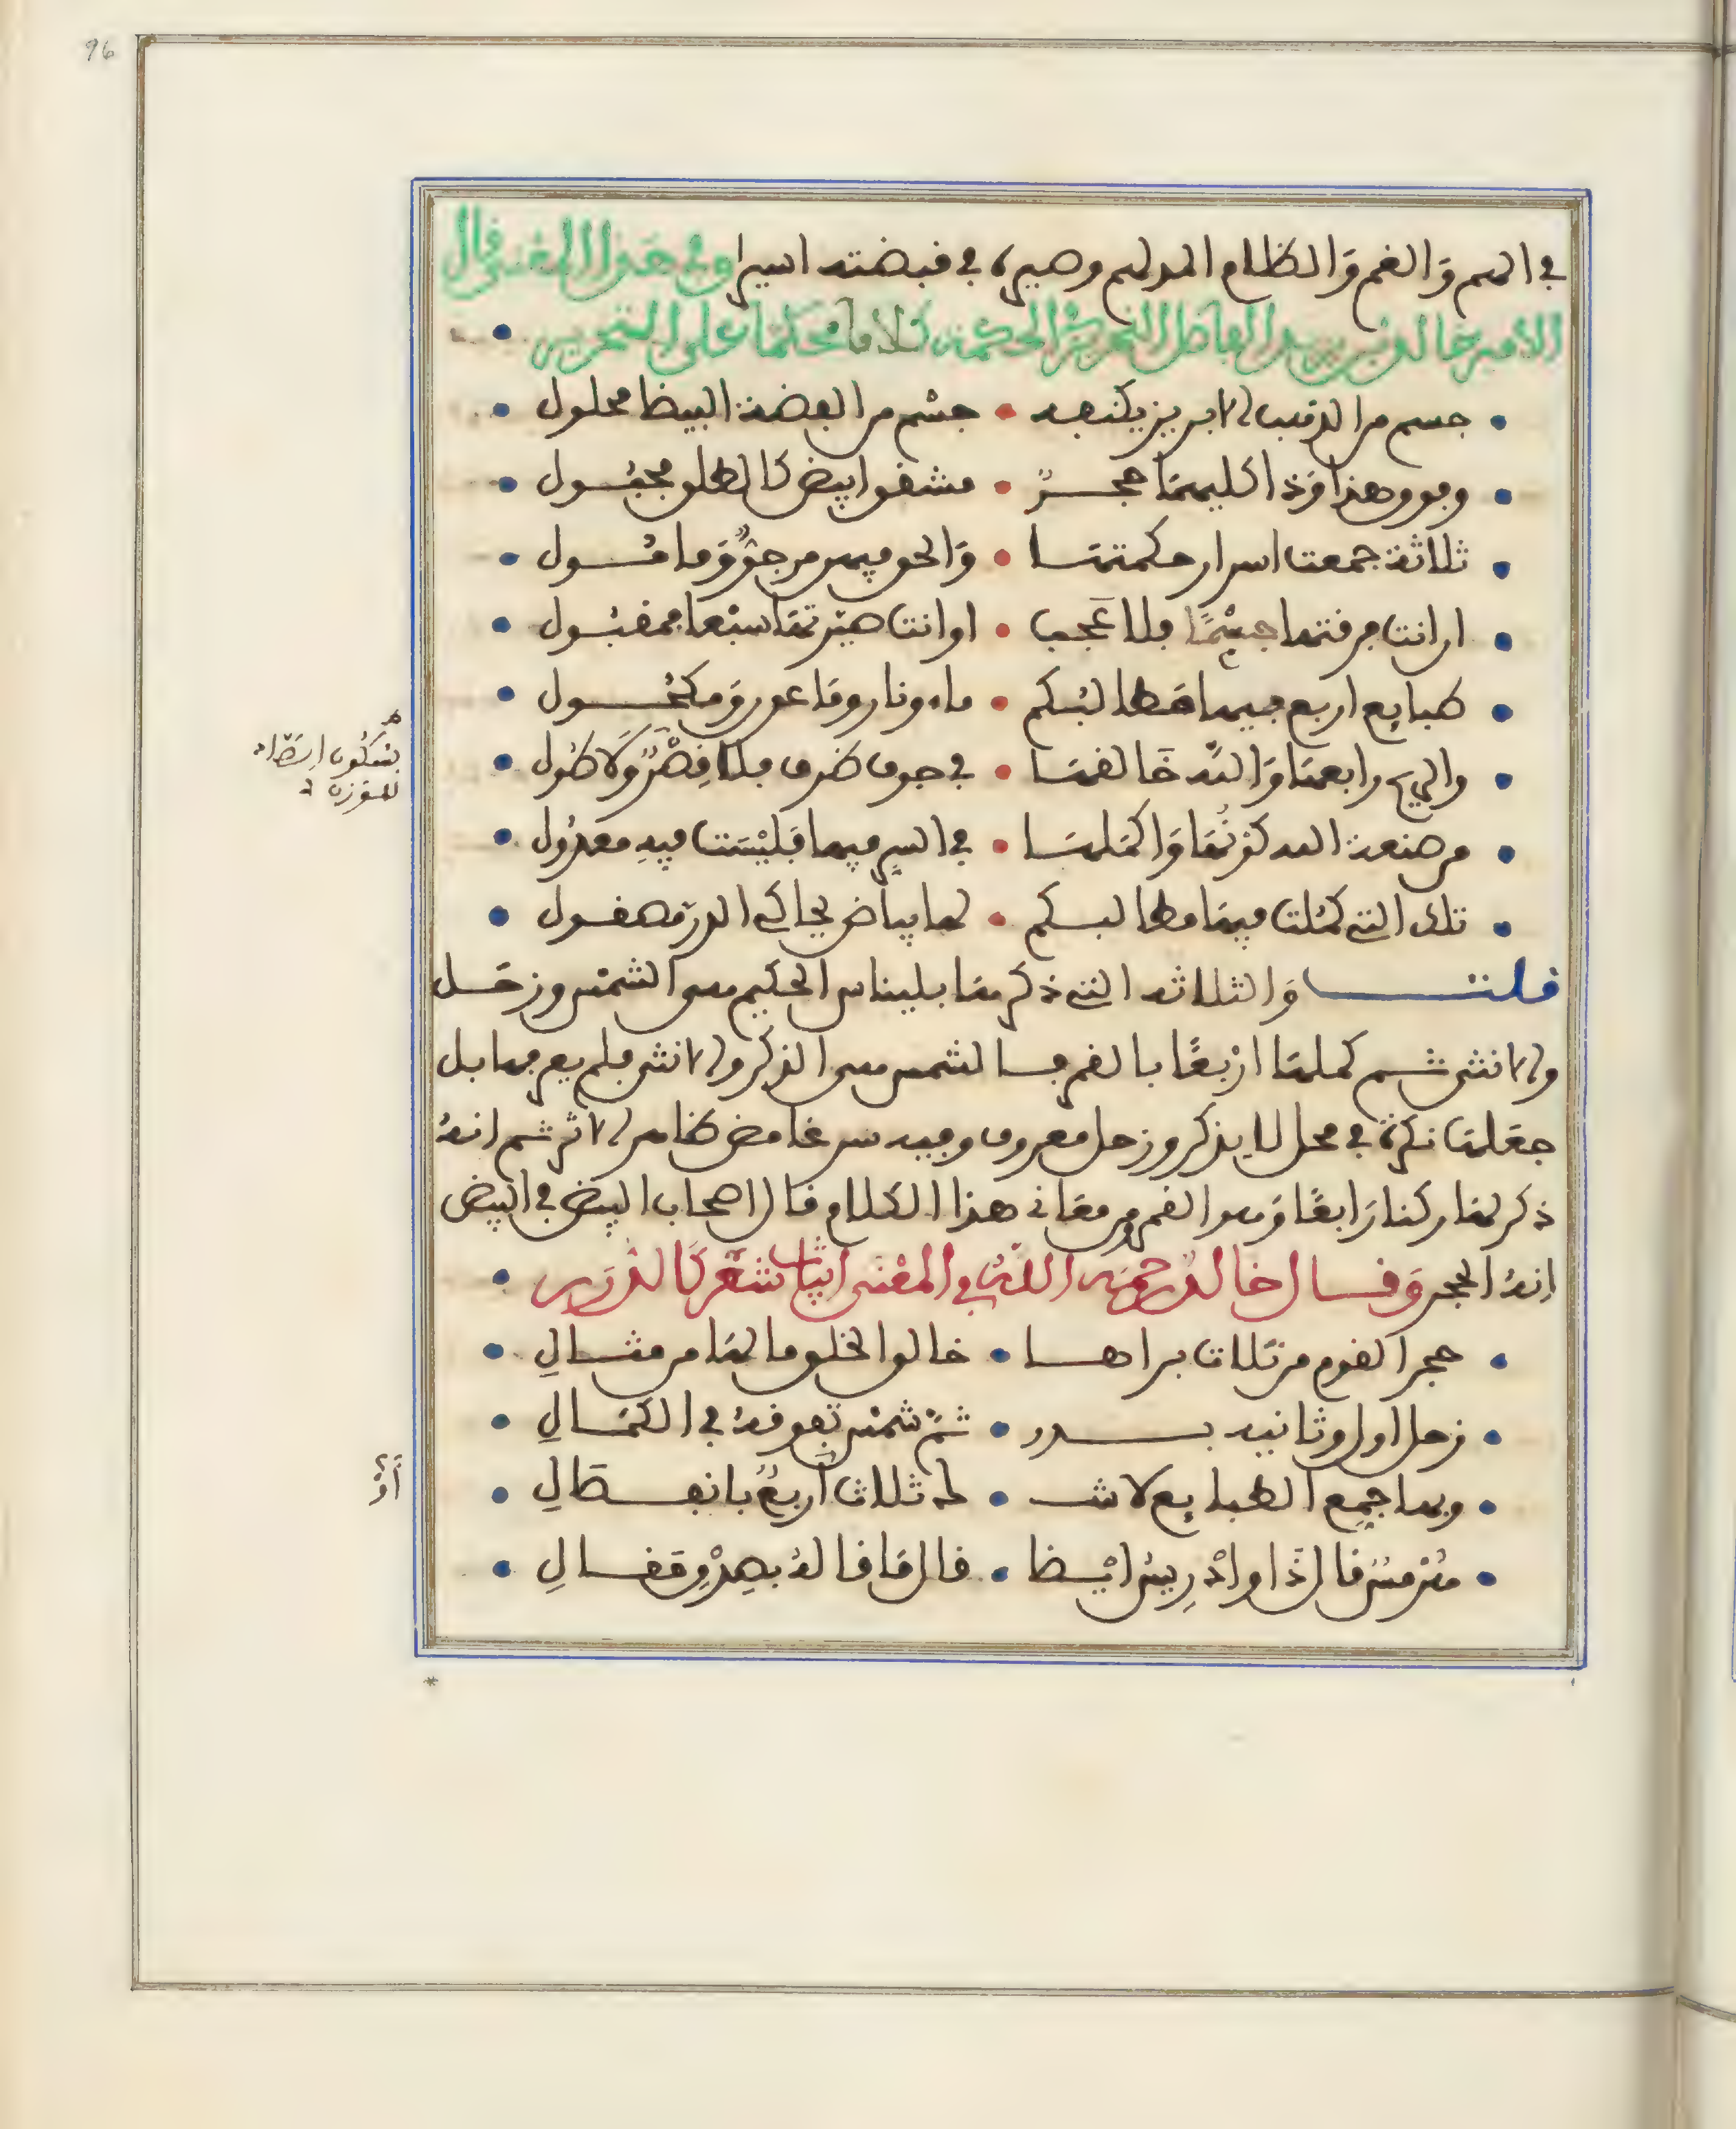 96
في الهم والغم والظلام المدلهم وصيره في قبضته اسيرا وفي هذا المعنى قال
الامير خالد بن يزيد الفاضل النحرير في الحكمة كلاما محكما على التحرير
جسم من الذهب الابريز يكنفه • جسم من الفضة البيضا محلول
وفوق هذا وذا كليهما حجر • مشف ابيض كالطلق مجبول
ثلاثة جمعت اسرار حكمتها • والحق فيهن مرجو ومامول
ان انت فرقتها جسما فلا عجب • او انت صيرتها سبعا فمقبول
طبايع اربع فيها مطالبكم • ماء ونار وماعون ومكحول
والريح رابعها والله خالقها • في جوف ظرف بلا قصر ولا طول
من صنعة الله كونها واكملها • في السر فيها فليست فيه معدول
تلك التي كملت فيها مطالبكم • لها بياض يحاكي الدر مصقول
قلت والثلاثة التي ذكرها بليناس الحكيم هي الشمس وزحل
والانثى ثم كملها اربعا بالقمر فالشمس هي الذكر والانثى فلم يعرفها بل
جعلها نكرة في محل لا يذكر وزحل معروف وفيه سر غامض ظاهر الاثر ثم انه
ذكر لها ركنا رابعا وهو القمر ومن معاني هذا الكلام قال اصحاب البيض في البيض
انه الحجر وقال خالد رحمه الله في المعنى ابيات شعر كالدرر
حجر القوم من ثلاث براها • خالق الخلق ما لها من مثال
زحل اول وثانيه بدر • ثم شمس تفوقه في الكمال
وبها جمع الطبايع لاشك • له ثلاث اربع بانفصال
هرمس قال ذا وادريس ايضا • قال ما قاله بصدق مقال
بسكون الضاد
للوزن
أو